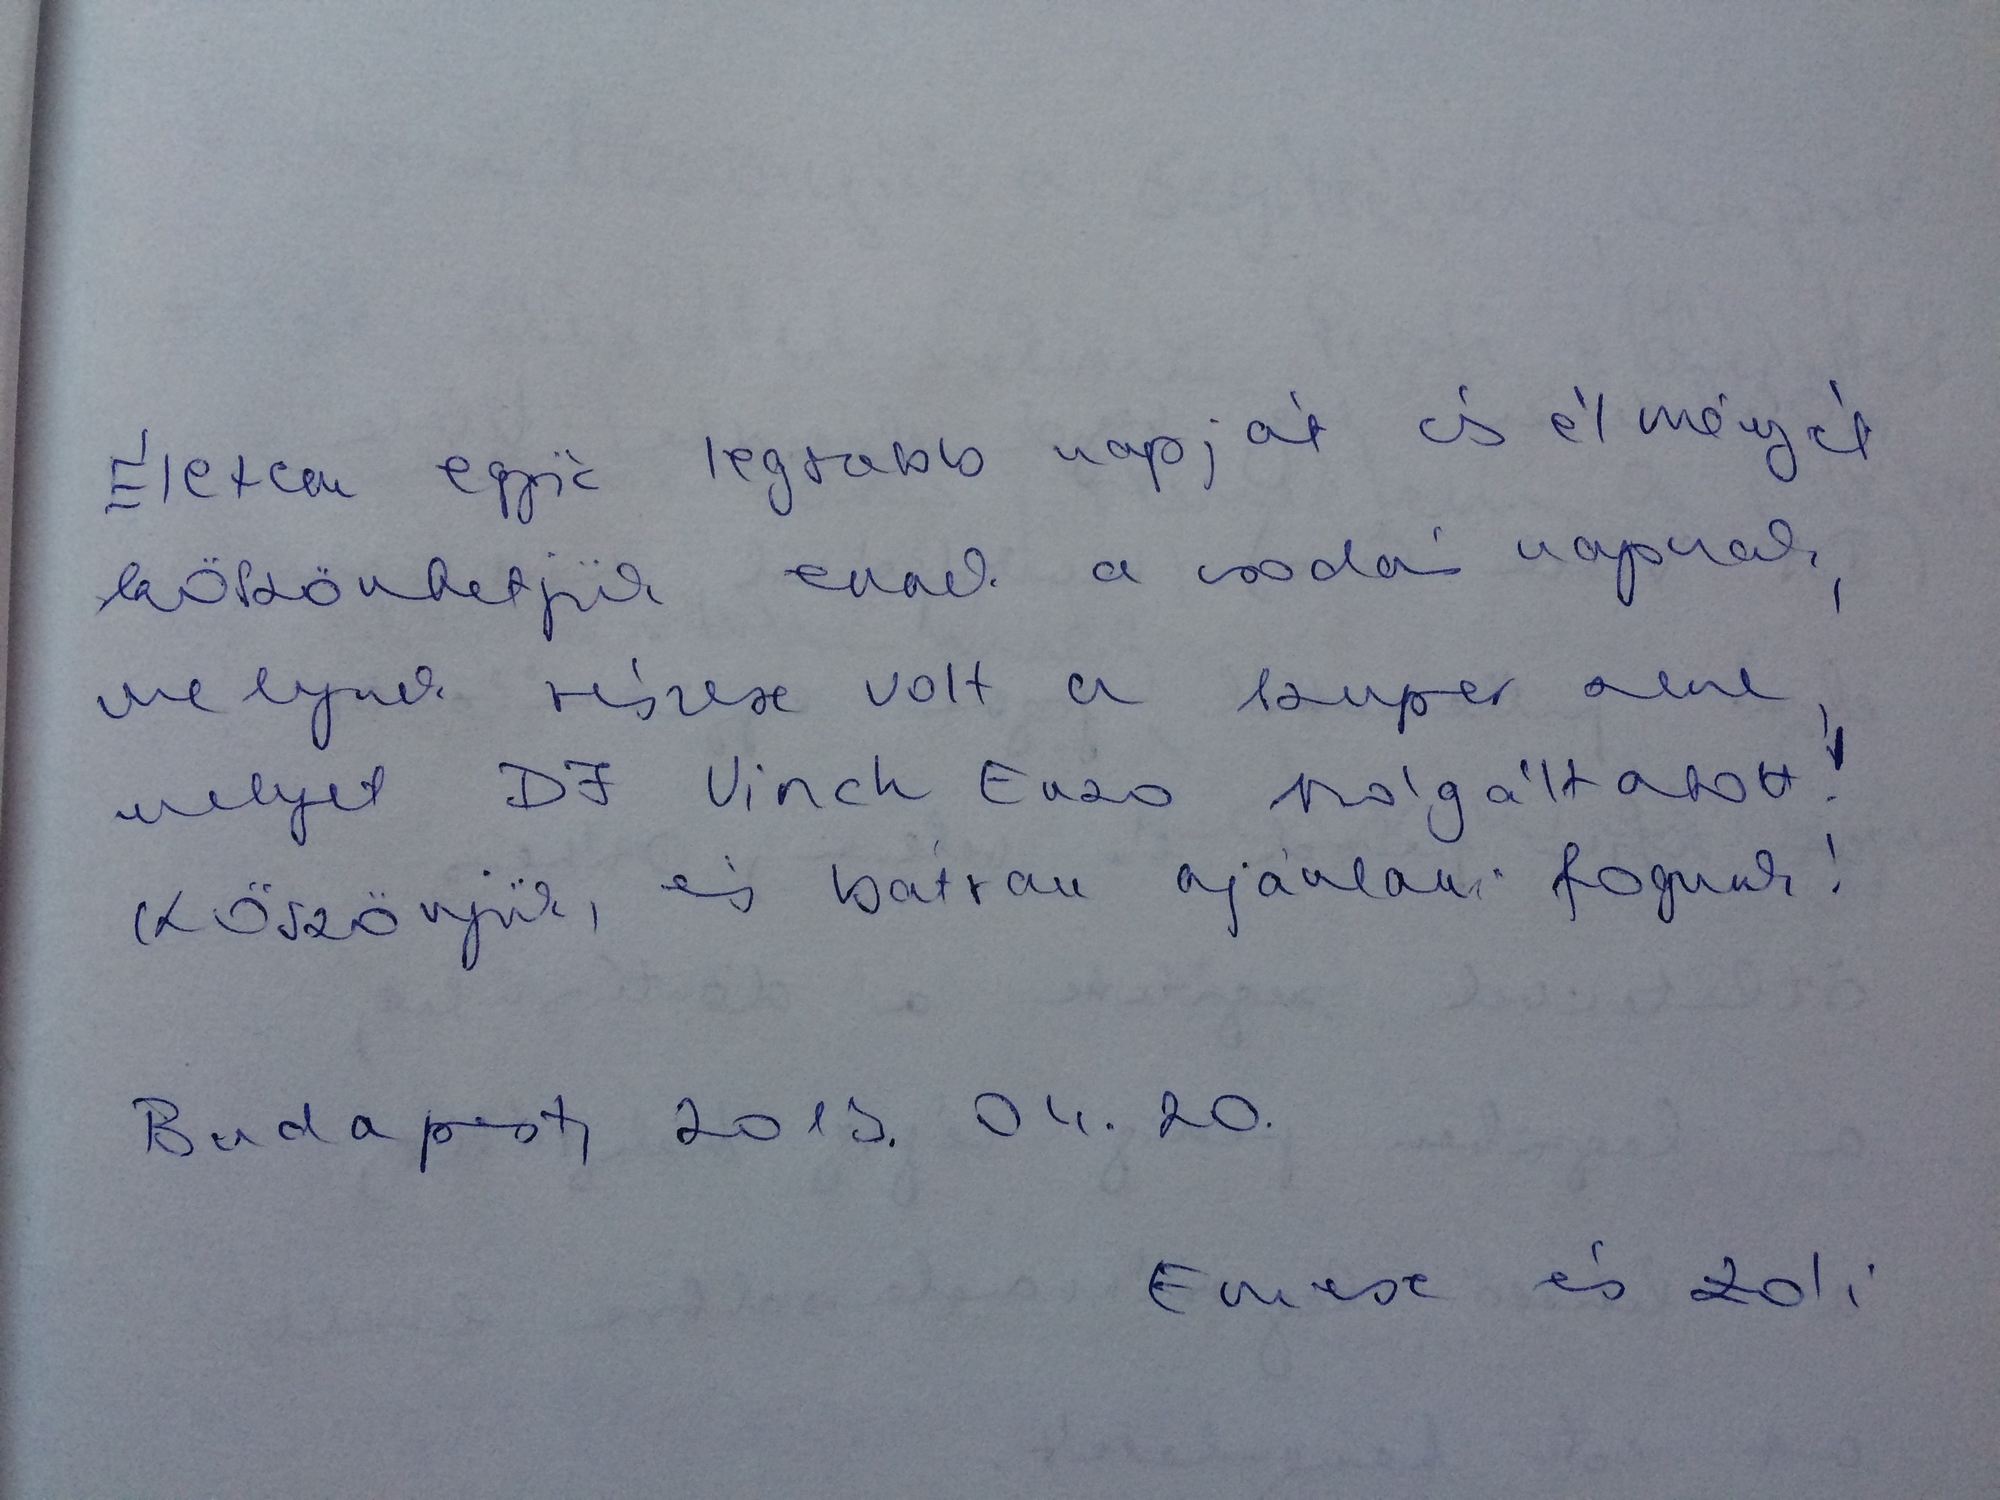 Életem egyik legszebb napját és élményét
köszönhetjük ennek a csodás napnak,
melynek része volt a szuper zene,
melyet DJ Vinch Enzo szolgáltatott!
Köszönjük, és bátran ajánlani fogunk!
Budapest, 2013. 04. 20.
Emese és Zoli